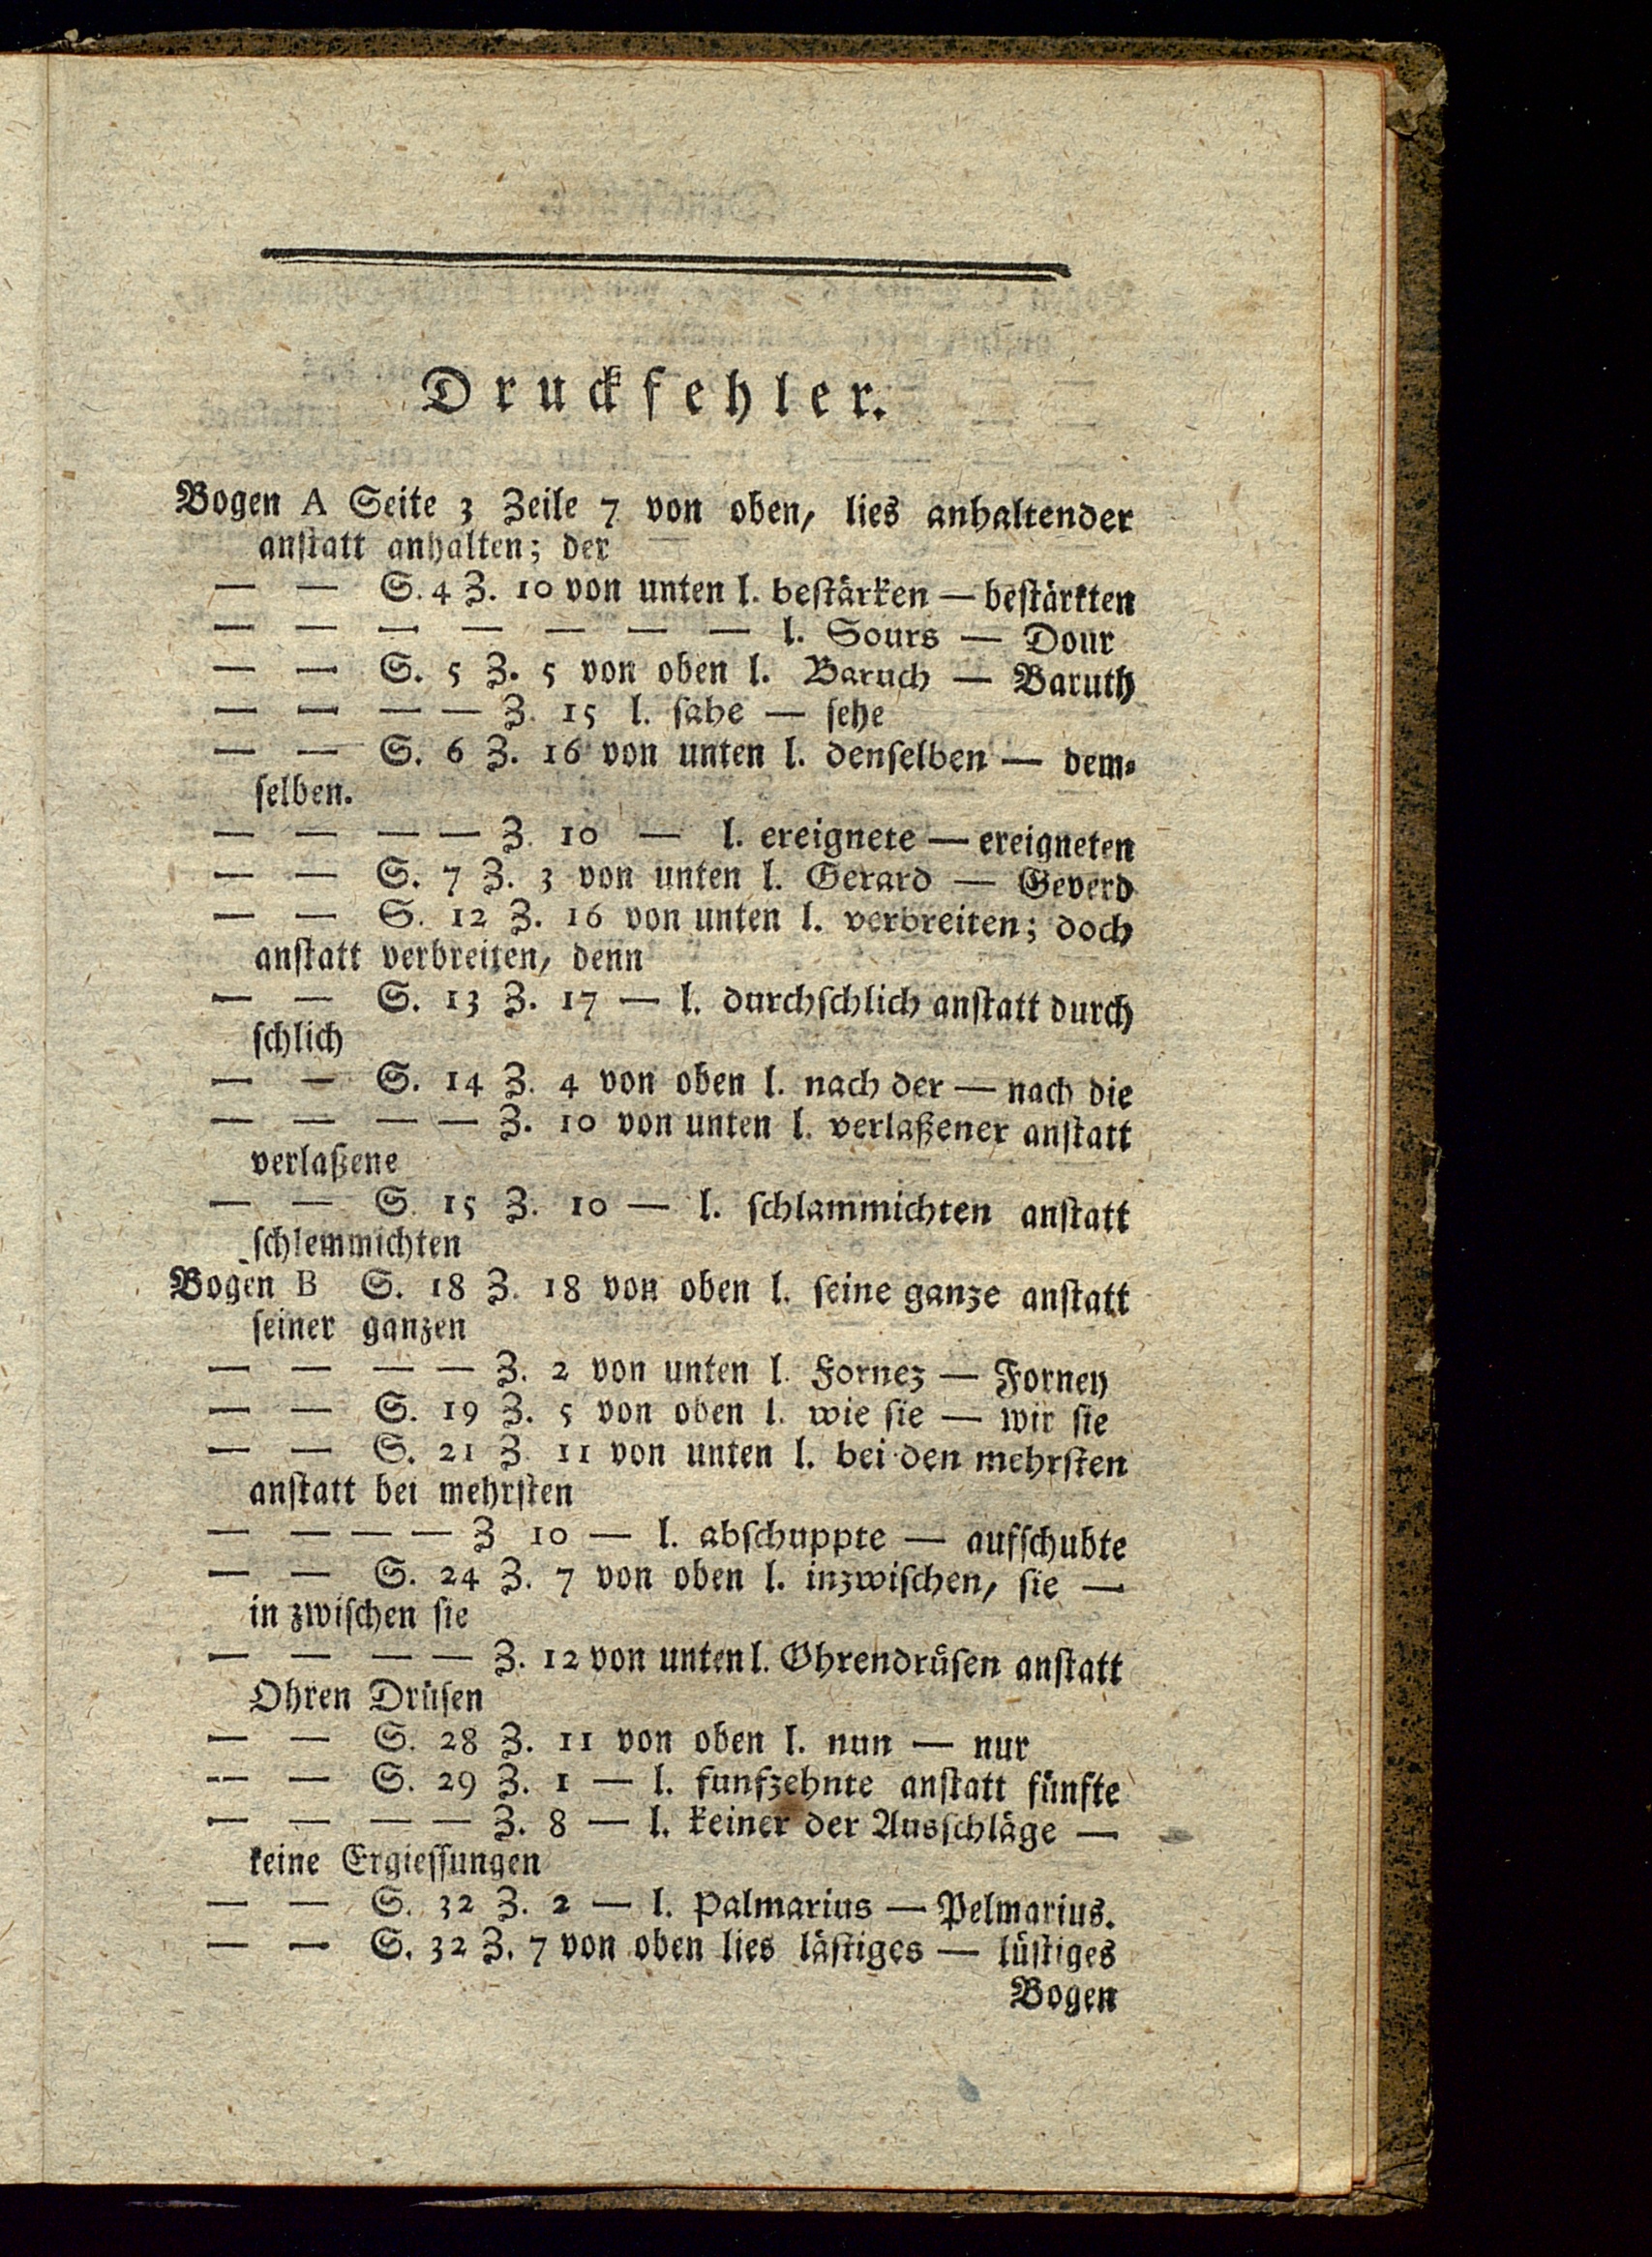 Druckfehler.
Bogen A Seite 3 Zeile 7 von oben, lies anhaltender
anſtatt anhalten; der
— — S. 4 Z. 10 von unten l. beſtärken — beſtärkten
— — — — — — — l. Sours — Dour
— — S. 5 Z. 5 von oben l. Baruch — Baruth
— — — — Z. 15 l. ſahe — ſehe
— — S. 6 Z. 16 von unten l. denſelben — dem⸗
ſelben.
— — — — Z. 10 — l. ereignete — ereigneten
— — S. 7 Z. 3 von unten l. Gerard — Geverd
— — S. 12 Z. 16 von unten l. verbreiten; doch
anſtatt verbreiten, denn
— — S. 13 Z. 17 — l. durchſchlich anſtatt durch
ſchlich
— — S. 14 Z. 4 von oben l. nach der — nach die
— — — — Z. 10 von unten l. verlaßener anſtatt
verlaßene
— — S. 15 Z. 10 — l. ſchlammichten anſtatt
ſchlemmichten
Bogen B S. 18 Z. 18 von oben l. ſeine ganze anſtatt
ſeiner ganzen
— — — — Z. 2 von unten l. Fornez — Forney
— — S. 19 Z. 5 von oben l. wie ſie — wir ſie
— — S. 21 Z. 11 von unten l. bei den mehrſten
anſtatt bei mehrſten
— — — — Z 10 — l. abſchuppte — aufſchubte
— — S. 24 Z. 7 von oben l. inzwiſchen, ſie —
in zwiſchen ſie
— — — — Z. 12 von unten l. Ohrendrüſen anſtatt
Ohren Drüſen
— — S. 28 Z. 11 von oben l. nun — nur
— — S. 29 Z. 1 — l. funfzehnte anſtatt fünfte
— — — — Z. 8 — l. keiner der Ausſchläge —
keine Ergieſſungen
— — S. 32 Z. 2 — l. Palmarius — Pelmarius.
— — S. 32 Z. 7 von oben lies läſtiges — lüſtiges
Bogen